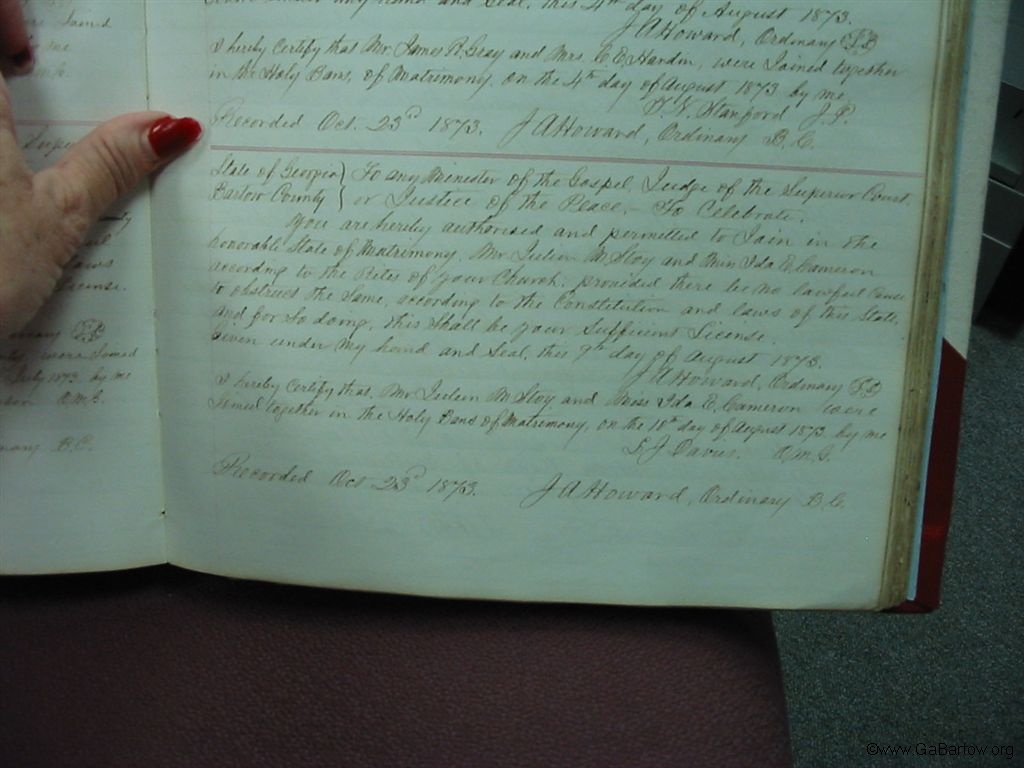 any hand and Seal, this 4th day of August 1873.
J A Howard, Ordinary
I hereby Certify that Mr. James R. Gray and Mrs. C E Hardin, were Joined together
in the Holy Bans, of Matrimony, on the 4th day of August 1873 by me
Stanford J.P.
Recorded Oct. 23d 1873. J A Howard, Ordinary B.C.
State of Georgia } To any Minester of the Gospel, Judge of the Superior Court
Bartow County } or Justice of the Peace,- To Celebrate,
You are hereby authorised and permitted to Join in the
honorable State of Matrimony, Mr Julien M. Sloy and Miss Ida E. Cameron
according to the Rites of your Church; provided there be no lawful Cause
to obstruct the Same, according to the Constitution and laws of this State,
and for So doing, this Shall be your Sufficient License.
Given under My hand and Seal, this 9th day of August 1873.
J A Howard, Ordinary
I hereby Certify that, Mr Julien M Sloy and Miss Ida E, Cameron were
Joined together in the Holy Bans of Matrimony, on the 10th day of August 1873, by me
Davies. O.M.G.
Recorded Oct 23d 1873. J A Howard, Ordinary B.C.
Joined
me
License.
were Joined
July 1873 by me
O.M.G.
B.C.
©www.GaBartow.org